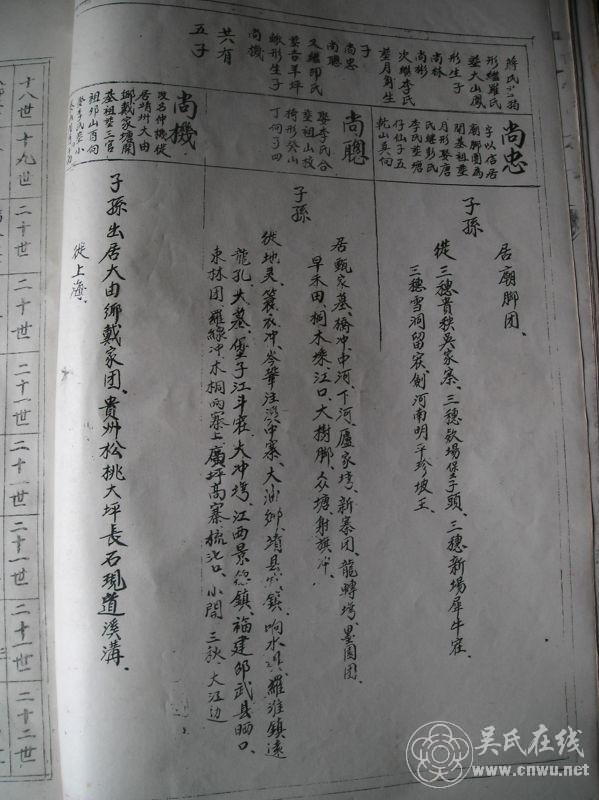 蔣氏
形繼羅氏
塟大山鳳
形生子
尚林
尚彬
次繼李氏
塟月角生
子
尚忠
尚聰
又繼邱氏
塟青羊坪
蜍形生子
尚機
共有
五子
尚忠
字以信居
廟脚團為
開基祖塟
月形娶唐
氏繼彭氏
李氏塟塘
仔仙子五
乾山巽向
尚聰
娶李氏合
塟祖山
椅形癸山
丁向子四
尚機
改名仲機從
居靖州大由
鄉戴家塘開
基祖塟三官
祖邛山酉向
子孫
居廟脚团、
徙三穗貴秧吳家寨、三穗款場堡子頭、三穗新場犀牛㽵
三穗雪洞留㝯、劍河南明平珍坡王
子孫
居甄家墓、橋冲、中河、下河、廬家塆、新寨团、龍轉塆、墨園团、
早禾田、桐木墺、江口、大樹脚、众塘、射旗冲、
徙地灵、簑衣冲、岑華注溪冲寨、大油鄉、靖县鎮、响水、羅淮鎮遠
龍孔、大墓、堡子江斗㽵、大冲塆、江西景德鎮、福建邵武县晒口、
東林团、羅線冲、木桐两寨上、廣坪高寨、梳化口、小開、三秋、大江边
子孫出居大由鄉戴家团、貴州松桃大坪長石現道溪溝、
徙上海、
十八世
十九世
二十世
二十世
二十一世
二十一世
二十一世
二十一世
二十二世
吴氏在线
www.cnwu.net